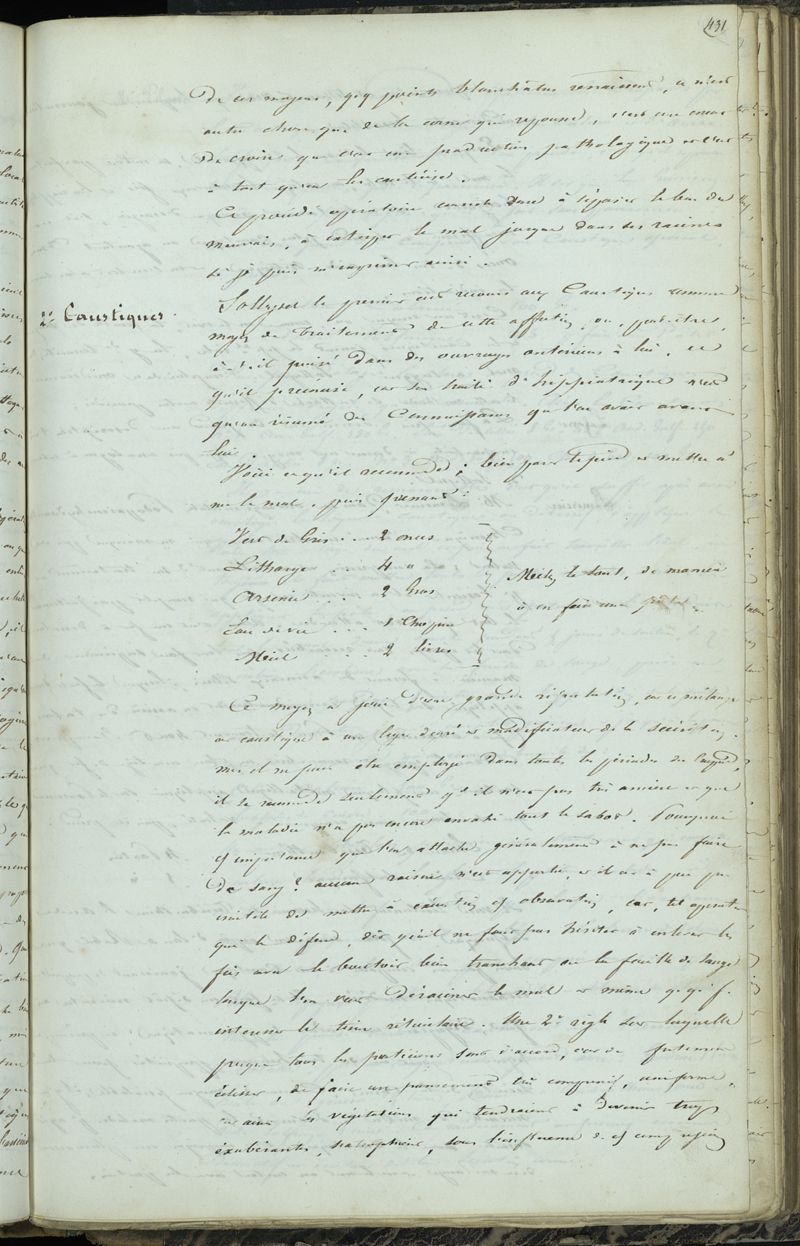 431
De ces moyens, qq points blanchâtres renaissent, ce n'est
autre chose que de la corne qui repousse, c'est une erreur
De croire que c'est une production pathologique et c'est
à tort qu'on les cautérise.
Ce procédé opératoire consiste donc à séparer le bon du
mauvais, à extirper le mal jusque dans ses racines
si je puis m'exprimer ainsi.
2° Caustiques.
Solleysel le premier eut recours aux Caustiques comme
moyen de traitement de cette affection, ou peut-être,
a-t-il puisé dans des ouvrages antérieurs à lui, ce
qu'il préconise, car son traité d'hippiatrique n'est
qu'un résumé des Connaissances qu'on avait avant
lui.
Voici ce qu'il recommande; bien parer le pied et mettre à
nu le mal, puis prenant:
Vert de Gris . . . 2 onces
Litharge . . . 4 "
Arsenic . . . 2 Gros
Eau de vie . . . 1 Chopine
Miel . . . 2 livres
Mêlez le tout, de manière
à en faire une pâte.
Ce moyen a joui d'une grande réputation, car ce mélange
est caustique à un léger degré et modificateur de la sécrétion,
mais il ne peut être employé dans toutes les périodes du
il se recommande seulement qd il n'est pas très ancien et que
la maladie n'a pas encore envahi tout le sabot. Pourquoi
cette importance que l'on attache généralement à ne pas faire
De sang? aucune raison n'est apportée, et il est à peu près
inutile de mettre à exécution cette observation, car, tel opérateur
qui le défend, dit qu'il ne faut pas hésiter à enlever les
fics avec le boutoir bien tranchant ou la feuille de sauge
lorsque l'on veut Déraciner le mal et même qq f.
intéresser le tissu réticulaire. Une 2e règle sur laquelle
presque tous les praticiens sont d'accord, c'est de fortement
éclisser, de faire un pansement très compressif, uniforme,
car ainsi les végétations qui tendraient à Devenir trop
exubérantes, s'atrophient, sous l'influence de cette compression